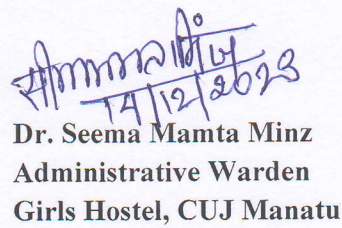 14/12/2023
Dr. Seema Mamta Minz
Administrative Warden
Girls Hostel, CUJ Manatu